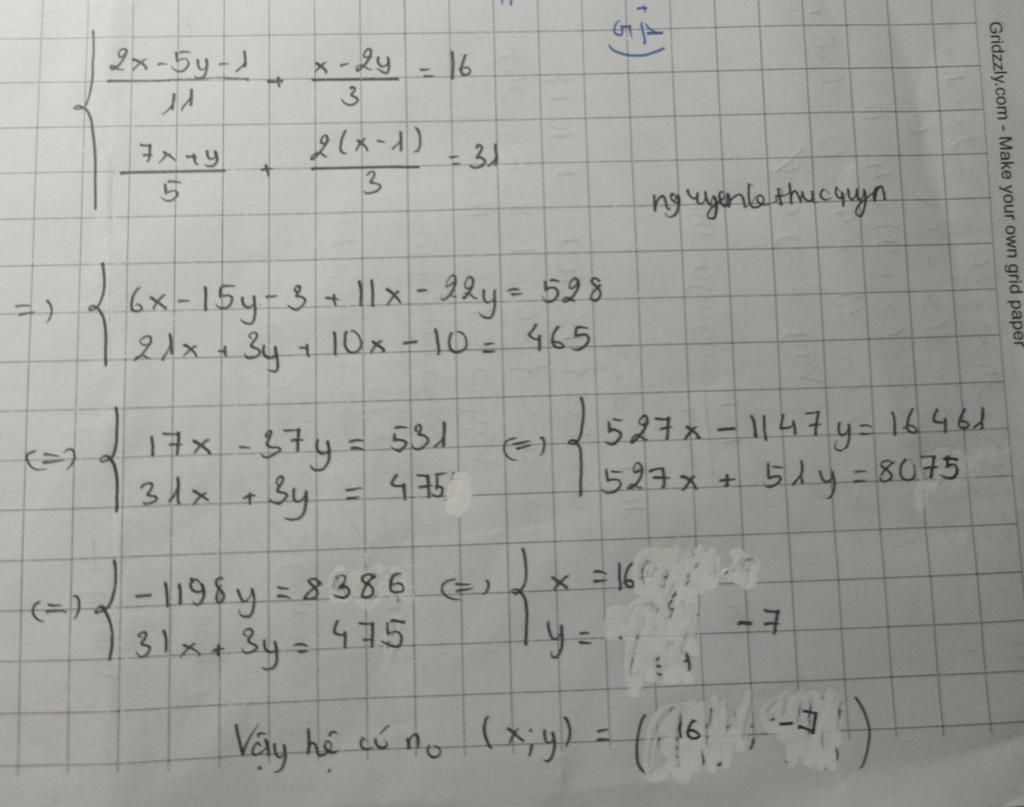 (2x-5y-1)/11 + (x-2y)/3 = 16
(7x+y)/5 + 2(x-1)/3 = 31
nguyenlethucquyn
=) { 6x-15y-3+11x-22y= 528
21x+3y+10x-10= 465
(=) { 17x-37y= 531 (=) { 527x-1147y=16461
31x+3y= 475 527x+51y=8075
(=) { -1198y=8386 (=) { x=16
31x+3y= 475 y= -7
Vậy hệ có n₀ (x;y) = (16; -7)
Gridzzly.com - Make your own grid paper